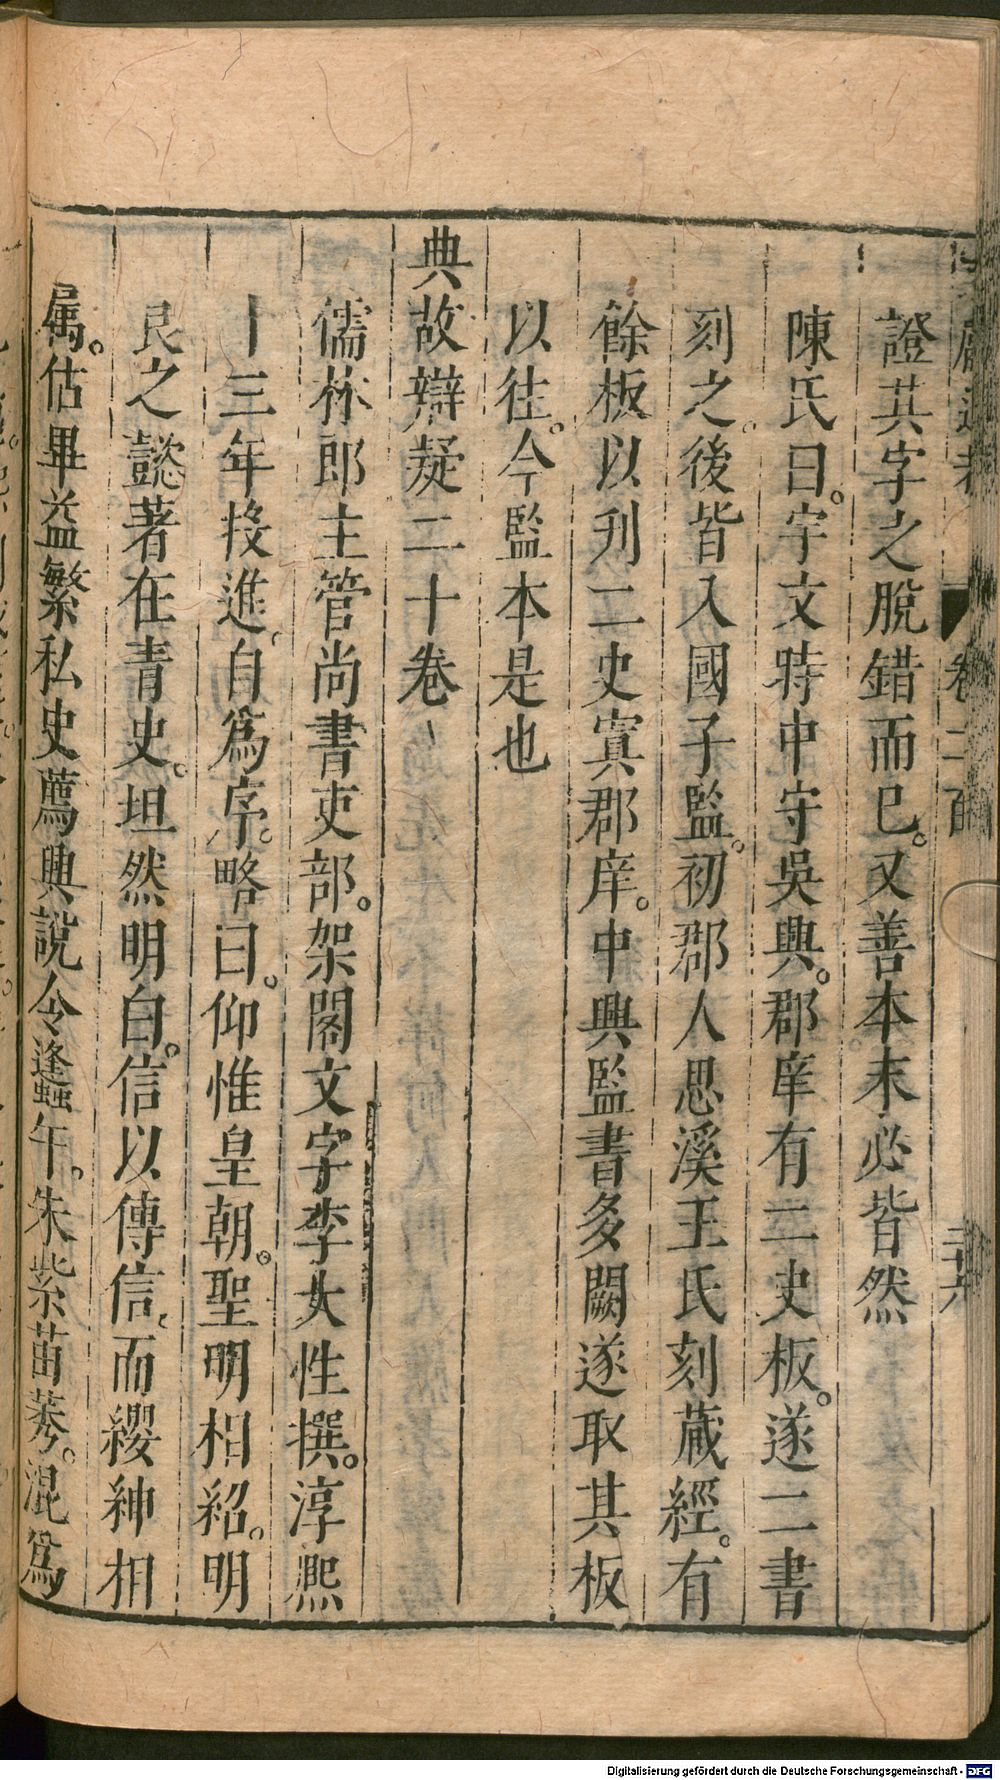 證其字之脫錯而已。又善本未必皆然
陳氏曰。宇文時中守吳興。郡庠有二史板。遂二書
刻之。後皆入國子監。初郡人思溪王氏刻蔵經。有
餘板以刋二史寘郡庠。中興監書多闕遂取其板
以徃。今監本是也
典故辯疑二十卷
儒林郎主管尚書吏部。架閣文字李大性撰。淳熈
十三年投進。自爲序。略曰。仰惟皇朝。聖明相紹。明
良之懿著在青史。坦然明白。信以傳信。而纓紳相
属。佔畢益繁私史薦興說令蠭午。朱紫苗莠。混爲
卷二百
二十六
Digitalisierung gefördert durch die Deutsche Forschungsgemeinschaft - DFG